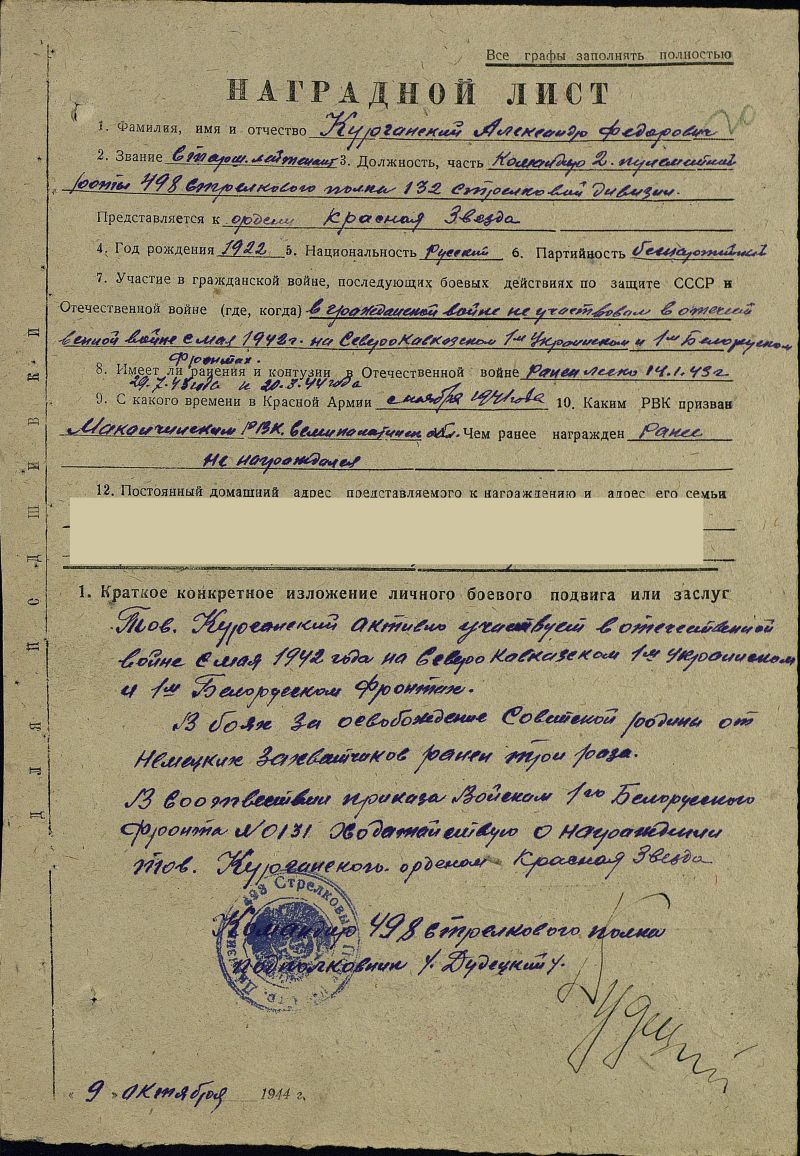 Все графы заполнять полностью
20
НАГРАДНОЙ ЛИСТ
1. Фамилия, имя и отчество Курганский Александр Федорович
2. Звание Старш. лейтенант 3. Должность, часть Командир 2. пулеметной
роты 498 стрелкового полка 132 стрелковой дивизии.
Представляется к ордену Красная Звезда
4. Год рождения 1922 5. Национальность русский 6. Партийность беспартийный
7. Участие в гражданской войне, последующих боевых действиях по защите СССР и
Отечественной войне (где, когда) в гражданской войне не участвовал в отечест
венной войне с мая 1942г. на Северо Кавказском 1м Украинском и 1м Белорусском
Фронтах.
8. Имеет ли ранения и контузии в Отечественной войне Ранен легко 14.1.43г
29.7.43 года и 20.3.44 года
9. С какого времени в Красной Армии с ноября 1941 года 10. Каким РВК призван
Маканчинским РВК. Семипалатинск обл. Чем ранее награжден Ранее
не награждался
12. Постоянный домашний адрес представляемого к награждению и адрес его семьи
1. Краткое конкретное изложение личного боевого подвига или заслуг
Тов. Курганский активно участвует в отечественной
войне с мая 1942 года на Северо Кавказском 1м Украинском
и 1м Белорусском Фронтах.
В боях за освобождение Советской родины от
Немецких захватчиков ранен три раза.
В воотвествии приказа Войскам 1го Белорусского
Фронта №0131 Ходатайствую о награждении
тов. Курганского. орденом Красная Звезда
Командир 498 стрелкового полка
подполковник /. Дудецкий /.
498 Стрелковый
Дудецкий
"9" октября 1944 г.
ДЛЯ ПОДШИВКИ